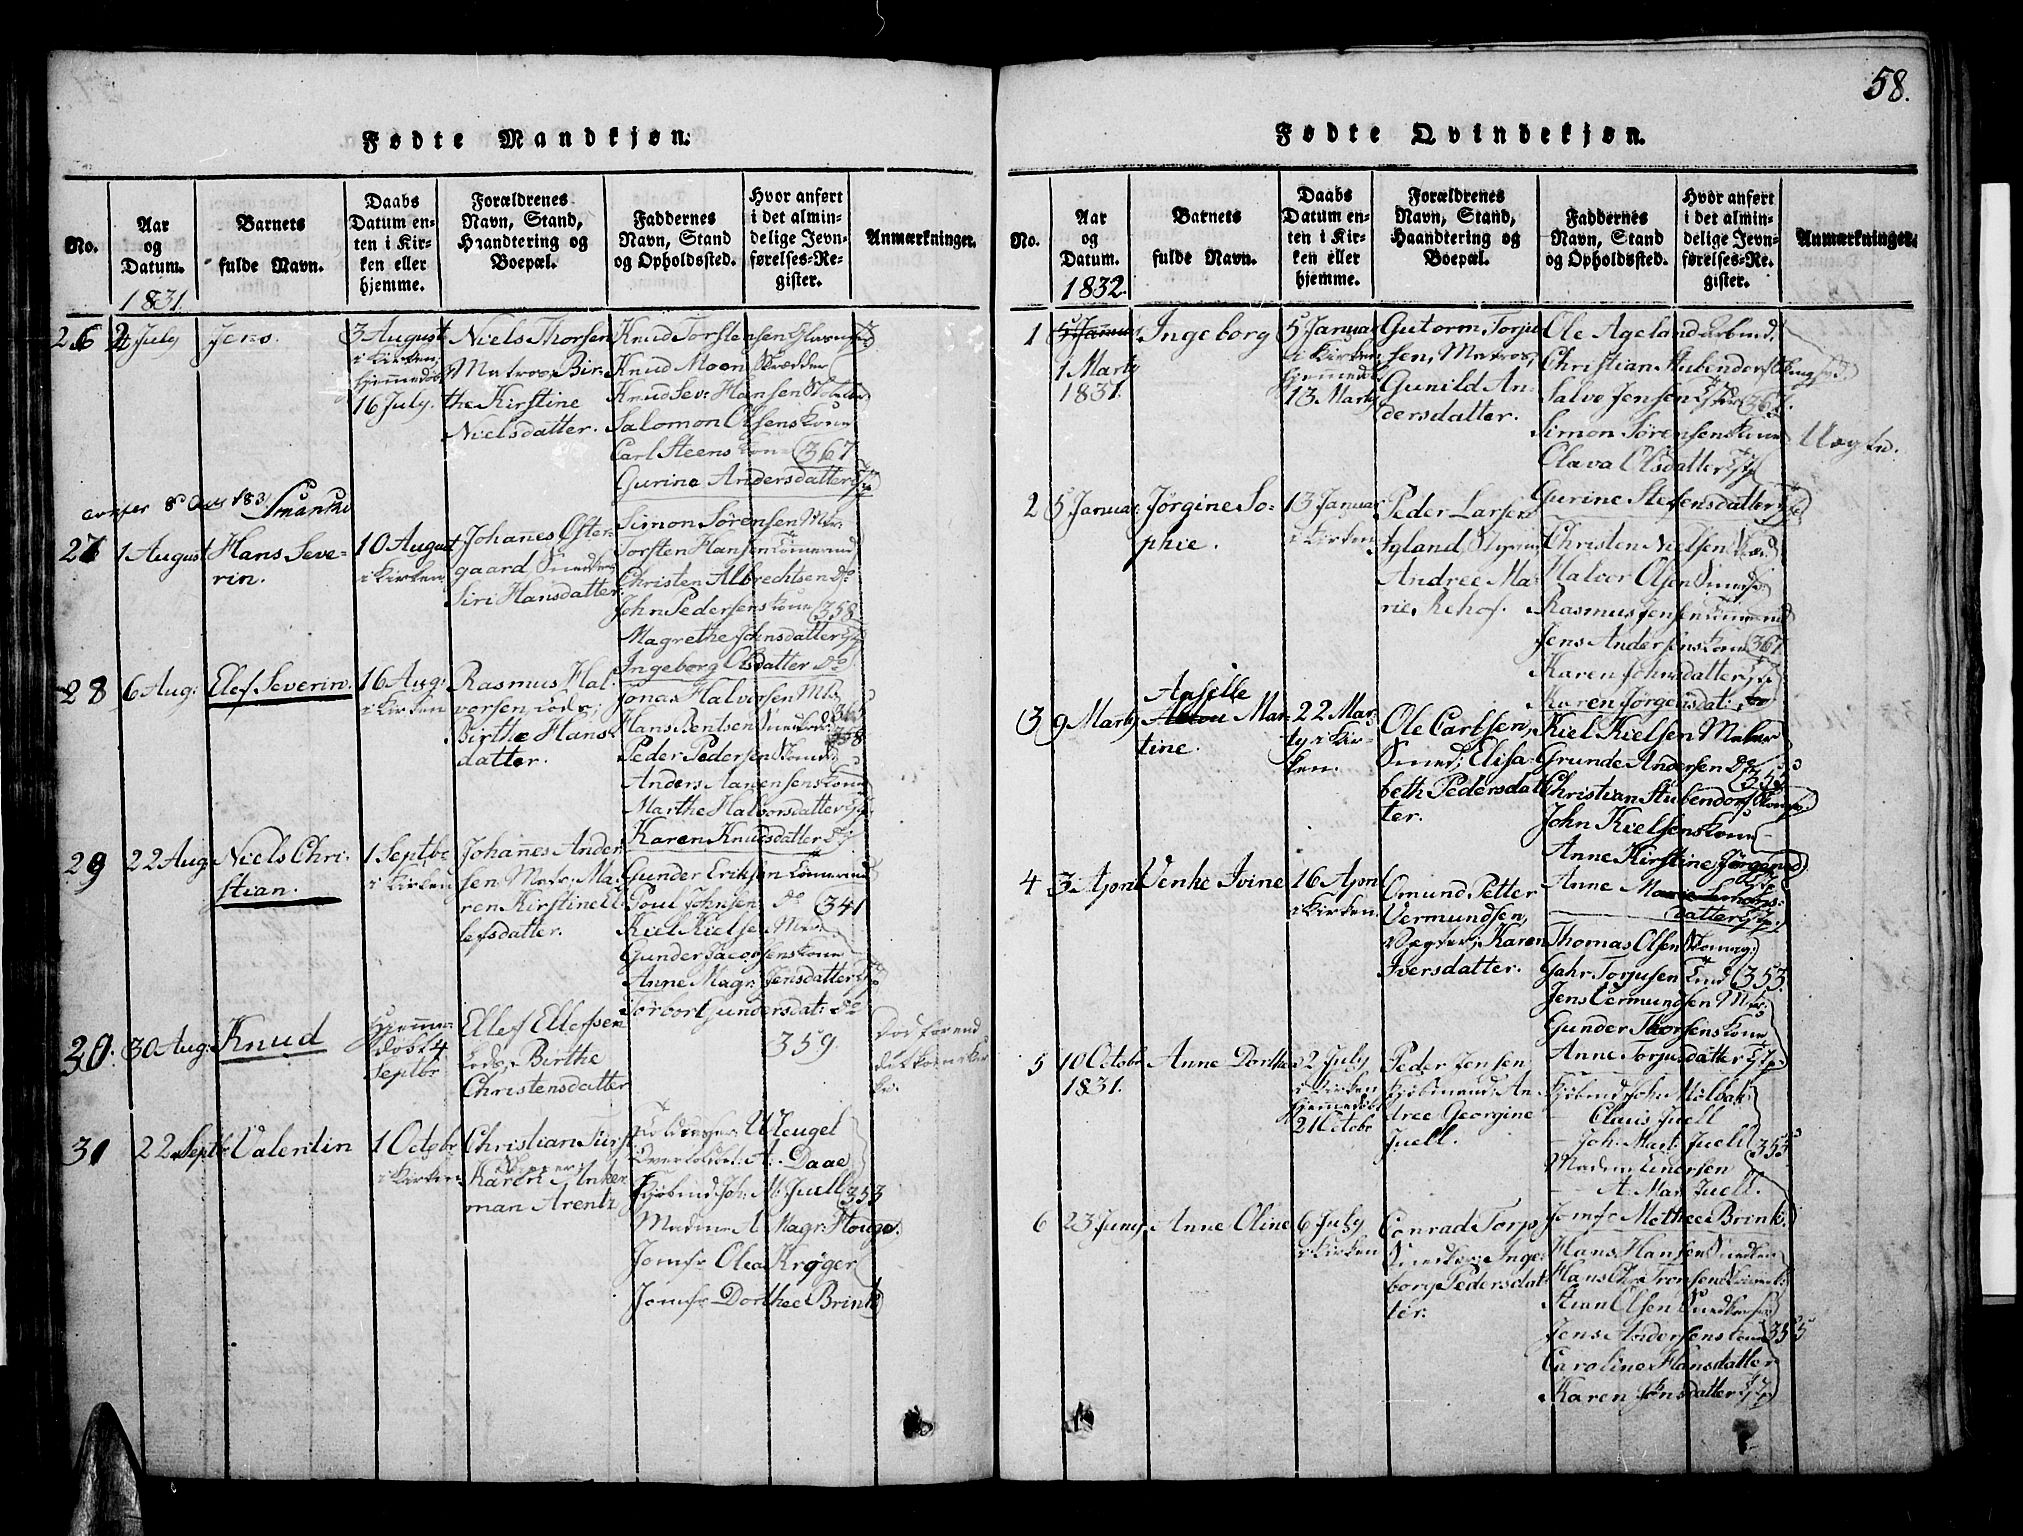 58.
Fødte Mandkjøn.
No.
Aar
og
Datum.
1831.
Barnets
fulde Navn.
Daabs
Datum en-
ten i Kir-
ken eller
hjemme.
Forældrenes
Navn, Stand,
Haandtering og
Boepæl.
Faddernes
Navn, Stand
og Opholdssted.
Hvor anført
i det almin-
delige Jevn-
førelses-Re-
gister.
Anmærkninger.
26
July
Jens.
3 August
i Kirken
hjemmedøbt
16 July.
Niels Thorsen
Matros, Bir-
the Kirstine
Nielsdatter.
Knud Torstensen
Knud Moon
Knud Sev: Hansen
Salomon Olsens kone
Carl Steens kone 367
Gurine Andersdatter
27
1 August
Hans Seve-
rin.
10 August
i Kirken
Johannes Øster-
gaard
Siri Hansdatter
Simon Sørensen
Torsten Hansen
Christen Albrechtsen do
John Pedersens kone 358
Magrethe Johnsdatter
Ingeborg Olsdatter do
28
6 Aug:
Elef Severin.
16 Aug:
i Kirken
Rasmus Hal-
vorsen, Lods,
Birthe Hans-
datter.
Jonas Halvorsen
Hans Bentsen
Peder Pedersen
Anders Aanensens kone
Marthe Halvorsdatter
Karen Knudsdatter do
29
22 Aug
Niels Chri-
stian.
1 Septbr
i Kirken
Johannes Ander
sen, Matr: Ma-
ren Kirstine El-
lefsdatter.
Gunder Eriksen
Poul Johnsen do 341
Kiel Kielsen
Gunder Jacobsens kone
Anne Magr: Jensdatter
Torbor Gundersdat: do
30.
30 Aug:
Knud
Hjemme-
døbt 4
Septbr
Ellef Ellefsen
Lods, Birthe
Christensdatter
359.
Død forend
31
22 Septbr
Valentin
1 Octobr
i Kirken
Christian
Karen Anker
man Arentz
A: Daae
Kjøbmd Joh: M. Juell 353
Madme A Magr: Houge.
Jomfr Olea Krøger
Jomfr Dorthee Brink
Fødte Qvindekjøn.
No.
Aar
og
Datum.
1832.
Barnets
fulde Navn.
Daabs
Datum en-
ten i Kir-
ken eller
hjemme.
Forældrenes
Navn, Stand,
Haandtering og
Boepæl.
Faddernes
Navn, Stand
og Opholdssted.
Hvor anført
i det almin-
delige Jevn-
førelses-Re-
gister.
Anmærkninger.
1
5 Januar
1 Marty
1831.
Ingeborg
5 Januar
i Kirken
hjemmedøbt
13 Marty
Gutorm Torju
sen, Matros,
Gunild An-
dersdatter.
Ole Ageland Arbmd.
Christian Stubendorf
Salve Jensen 367.
Simon Sørensens kone
Olava Olsdatter
Gurine Stefensdatter
Uægte.
2
5 Januar.
Jørgine So-
phie.
13 Januar
i Kirken
Peder Larsen
Igland, Styrm:
Andree Ma-
rie Rehof.
Christen Nielsen
Halvor Olsen
Rasmus Jensen
Jens Andersens kone 367
Karen Johnsdatter
Karen Jørgensdat:
3
9 Marty
Aaselle
Mar-
tine.
22 Mar-
ty i Kir-
ken.
Ole Carlsen,
Smed; Elisa-
beth Pedersdat
ter.
Kiel Kielsen
Grunde Andersen do
Christian Stubendorf
John Kielsens kone
Anne Kirstine
Anne Marie Simons-
datter
4
3 April
Venke Ivine
16 April
i Kirken.
Omund Petter
Vermundsen,
Vægter; Karen
Iversdatter.
Thomas Olsen
Gahr Torjusen 353
Jens Vermundsen
Gunder Thorsens kone
Anne Torjusdatter
5
10 Octobr
1831.
Anne Dorthe
2 July
i Kirken
hjemmedøbt
21 Octobr
Peder Jensen
Kjøbmand; An
dree Georgine
Juell.
Kjøbmd John Mølbak
Claus Juell
Joh: Mart: Juell 353
Madm Enersen
A. Mar. Juell.
Jomfr Methee Brink.
6
23 Juny
Anne Oline
6 July
i Kirken
Conrad Torp
Snedker; Inge-
borg Pedersdat
ter.
Hans Hansen Snedker
Hans Chr: Tronsen
Stian Olsen
Jens Andersens kone 355
Caroline Hansdatter
Karen Jensdatter